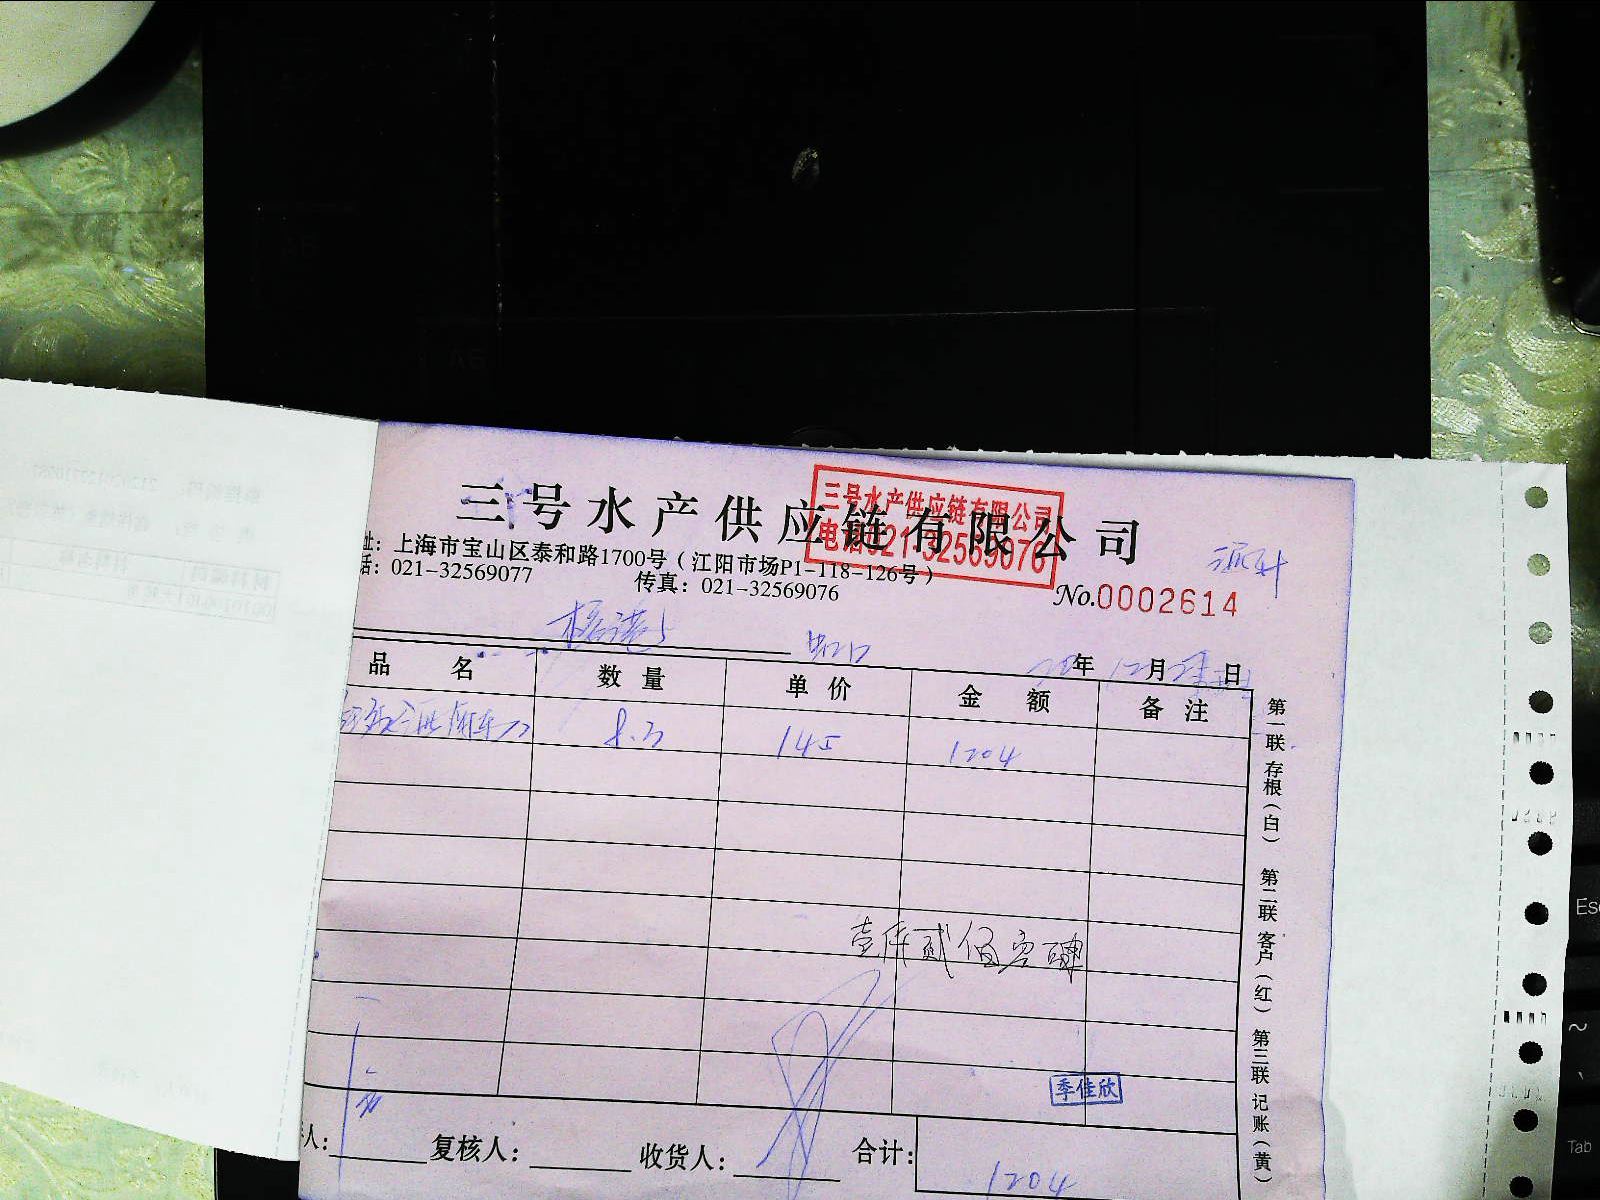 三号水产供应链有限公司
三号水产供应链有限公司
电话021-32569076
址：上海市宝山区泰和路1700号（江阳市场P1-118-126号）
话：021-32569077 传真：021-32569076
No.0002614
虹口
年12月 日
品名 数量 单价 金额 备注
8.3 145 1204
壹仟贰佰零肆
季佳欣
人： 复核人： 收货人： 合计：1204
第一联 存根（白） 第二联 客户（红） 第三联 记账（黄）
Esc
~
Tab
A6